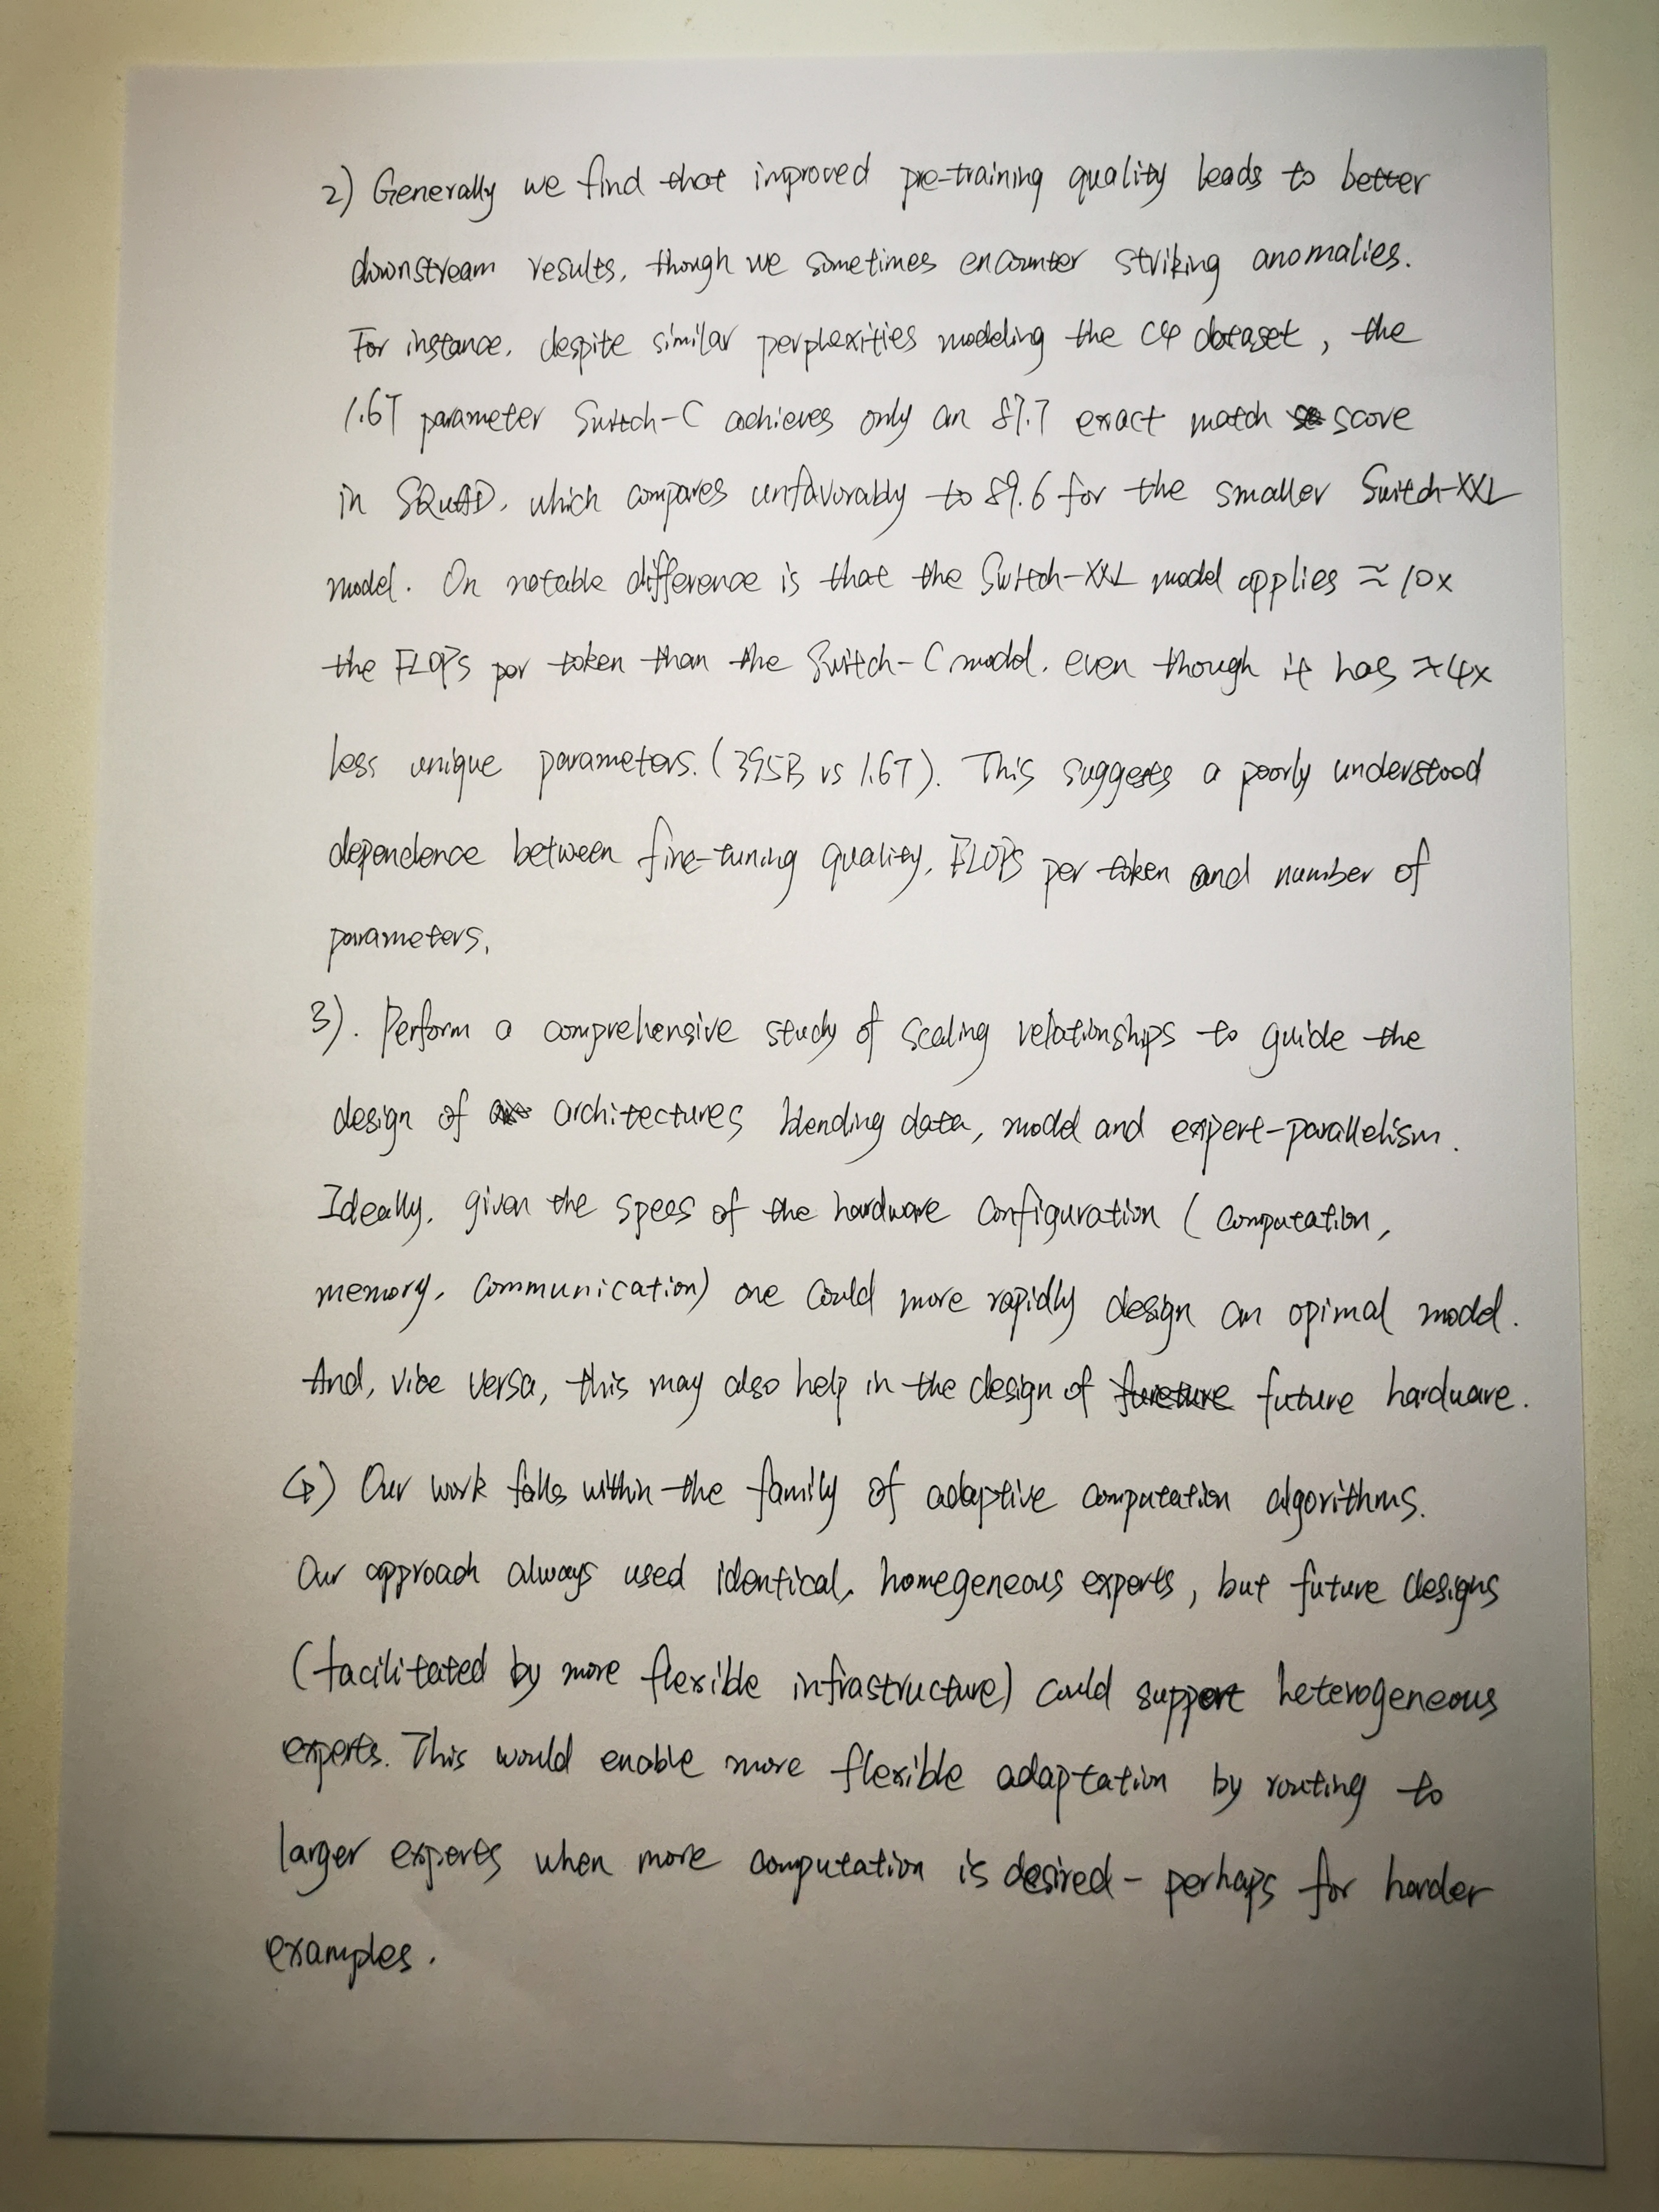 2) Generally we find that improved pre-training quality leads to better
downstream results, though we sometimes encounter striking anomalies.
For instance, despite similar perplexities modeling the C4 dataset, the
1.6T parameter Switch-C achieves only an 87.7 exact match score
in SQuAD, which compares unfavorably to 89.6 for the smaller Switch-XXL
model. On notable difference is that the Switch-XXL model applies ≈ 10x
the FLOPs per token than the Switch-C model, even though it has ≈4x
less unique parameters. (395B vs 1.6T). This suggests a poorly understood
dependence between fine-tuning quality, FLOPS per token and number of
parameters.
3). Perform a comprehensive study of scaling relationships to guide the
design of architectures blending data, model and expert-parallelism.
Ideally, given the specs of the hardware configuration (computation,
memory, communication) one could more rapidly design an opimal model.
And, vibe versa, this may also help in the design of future hardware.
4) Our work falls within the family of adaptive computation algorithms.
Our approach always used identical, homegeneous experts, but future designs
(facilitated by more flexible infrastructure) could support heterogeneous
experts. This would enable more flexible adaptation by routing to
larger experts when more computation is desired - perhaps for harder
examples.